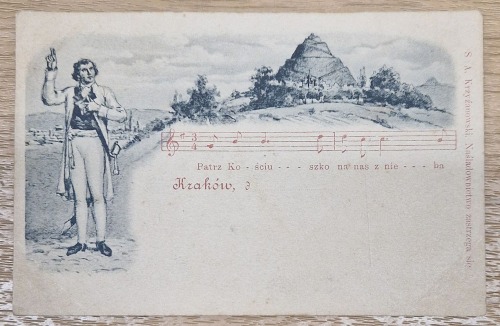 Patrz Ko - ściu - - - - szko na nas z nie - - - ba
Kraków, 3
S. A. Krzyżanowski. Naśladownictwo zastrzega się.